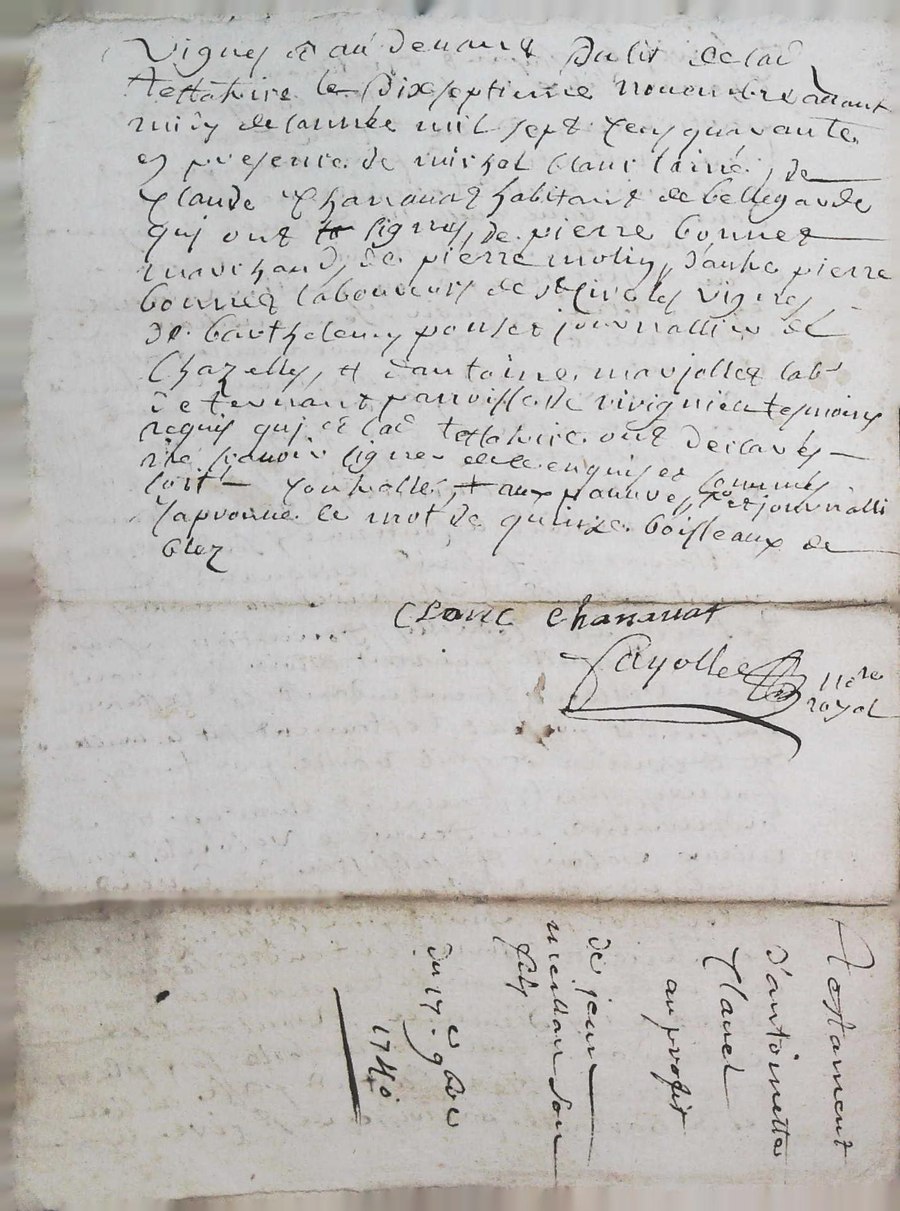 Vignes et au devant du lit de lad
testatrice le dixseptieme novembre avant
midy de lannée mil sept cens quarante
en presence de michel Clauc lainé, de
Claude Chanauat habitant de bellegarde
qui ont signes, de pierre bonnet
marchand, de pierre moliy, dautre pierre
bonnet laboureurs de st Cire les vignes
de barthelemy ponset journallier de
Chazelles, et dantoine marjollet lab
parroisse de vivigneu tesmoins
requis qui et lad testatrice ont declarés
ne scavoir signer de ce enquis et sommés
aux pauvres, et journalli
Japrouue le mot de quinze boisseaux de
blez
Clauc Chanauat
fayolle nore
royal
Testament
dantoinette
Clavel
au profit
de jean
son
fils
du 17e 9bre
1740